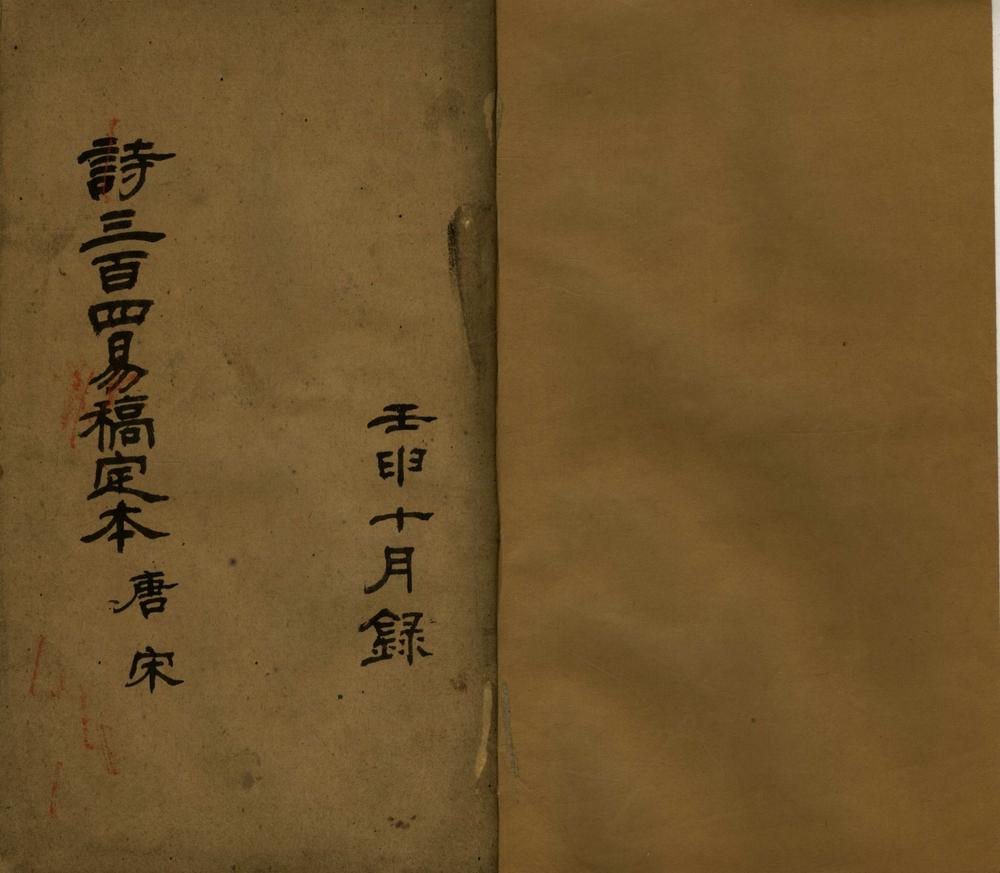 壬申十月録
詩三百四易稿定本 唐 宋